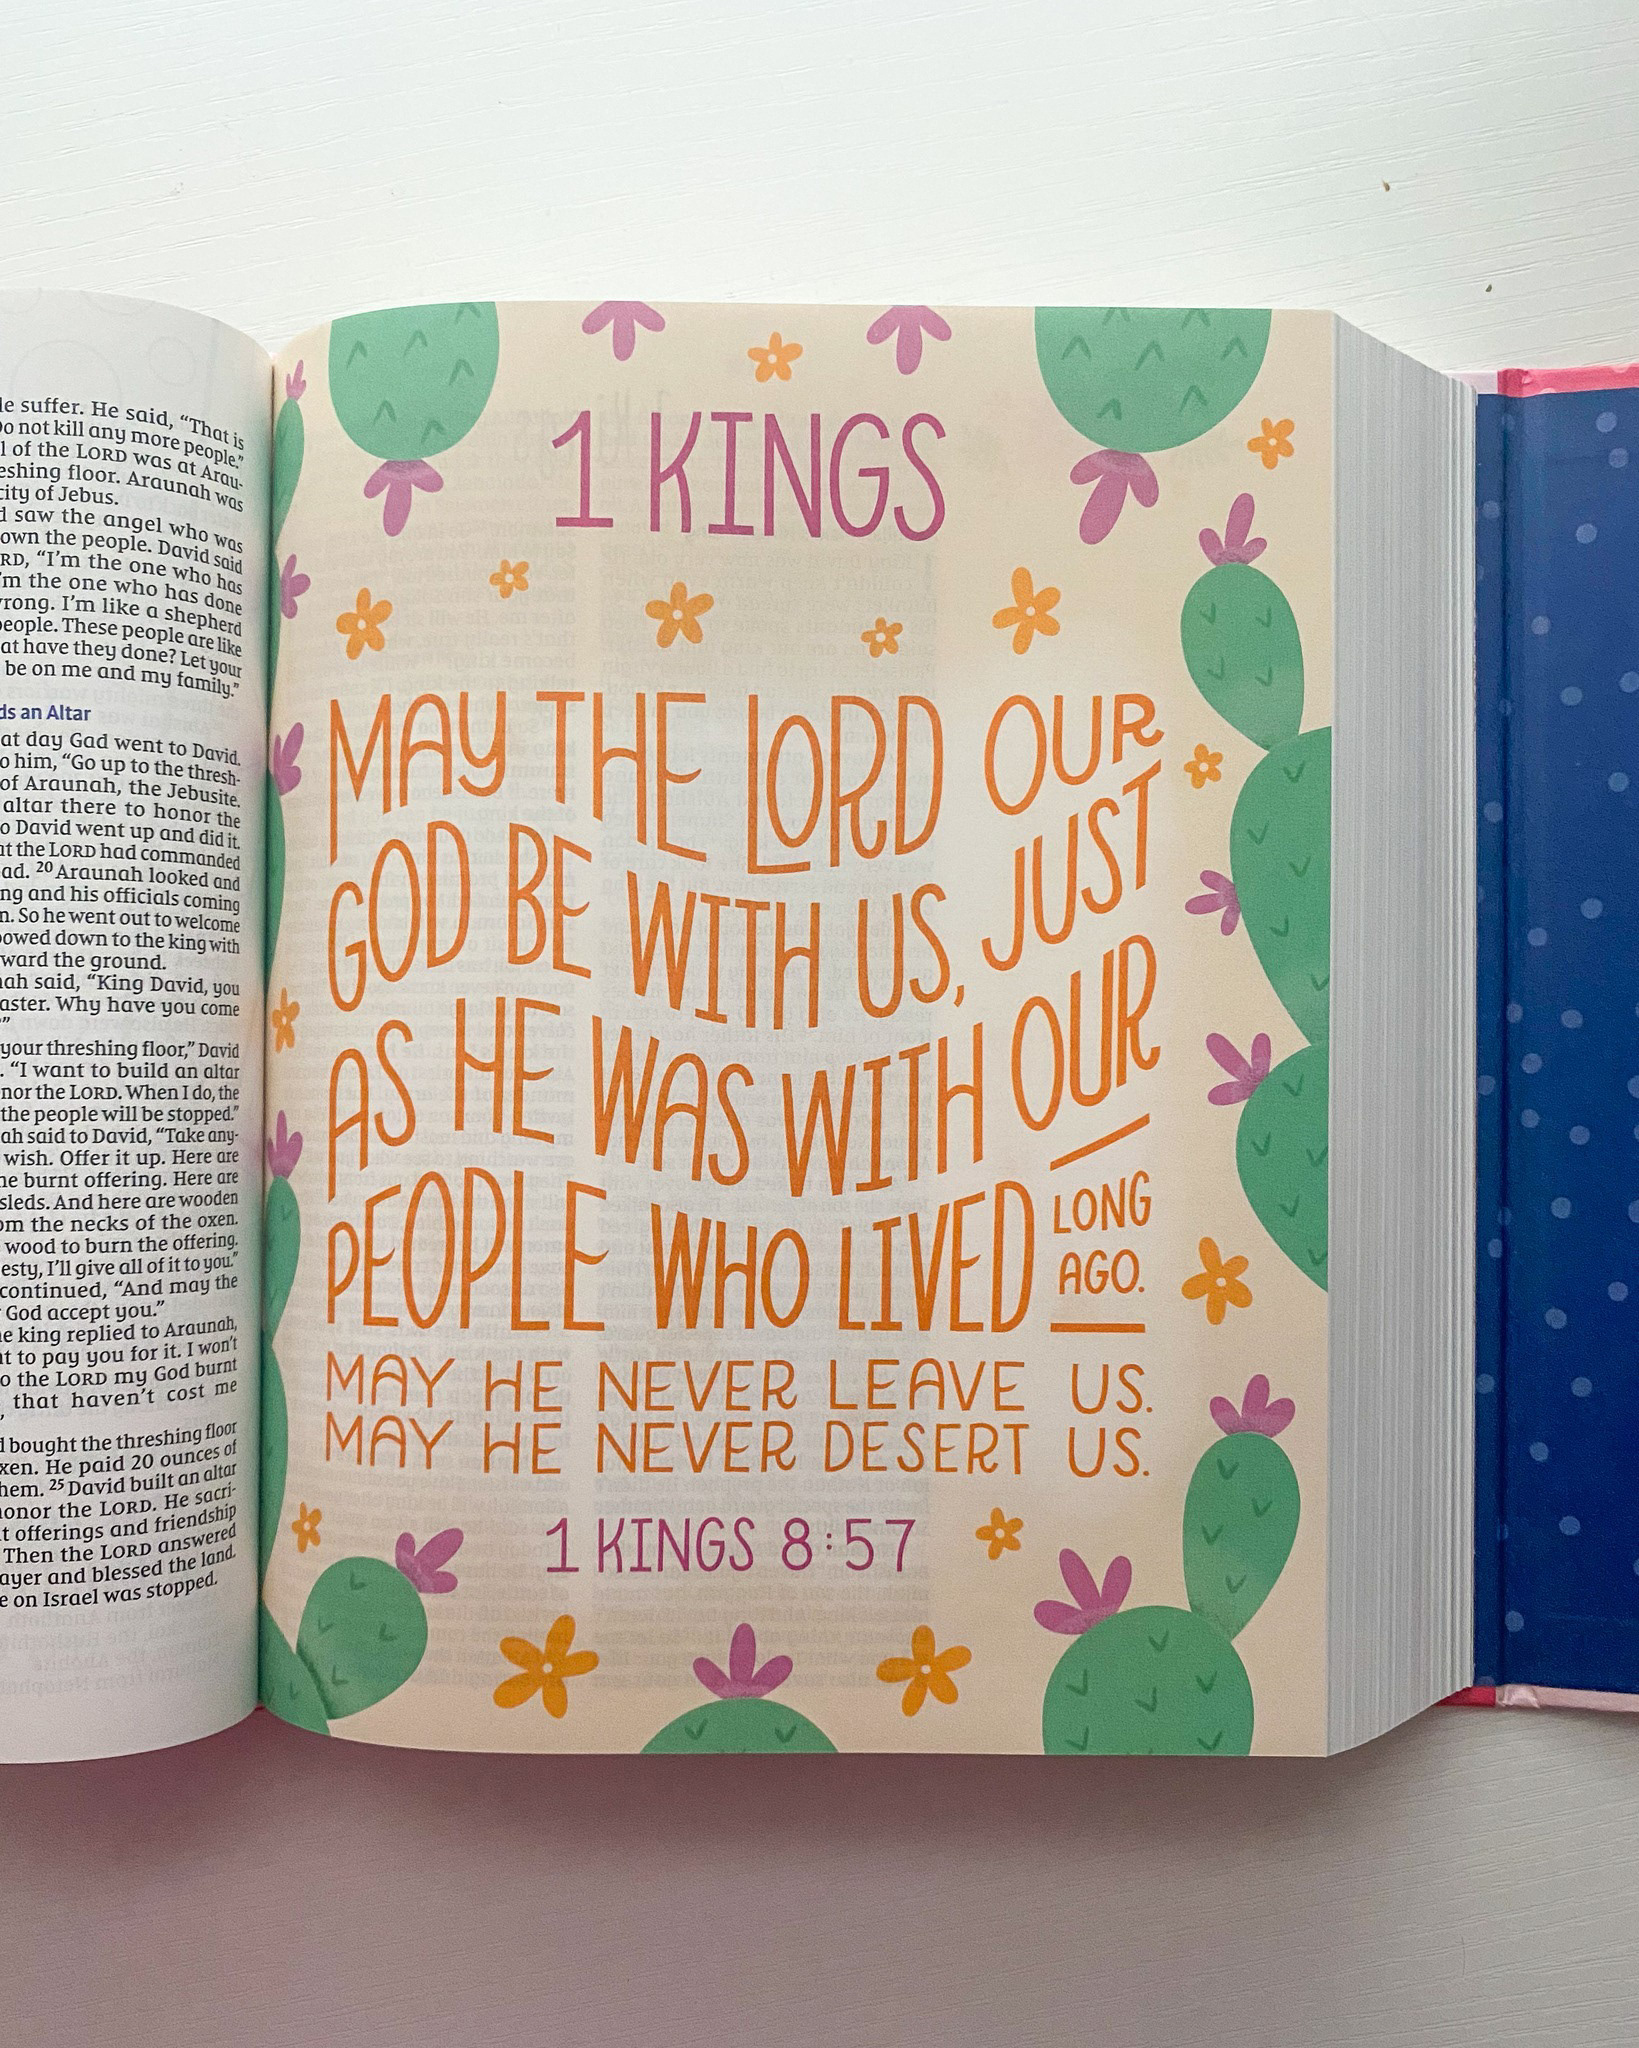 le suffer. He said, “That is
Do not kill any more people.”
l of the LORD was at Arau-
eshing floor. Araunah was
city of Jebus.
d saw the angel who was
own the people. David said
RD, “I’m the one who has
’m the one who has done
rong. I’m like a shepherd
people. These people are like
at have they done? Let your
be on me and my family.”
ds an Altar
at day Gad went to David.
o him, “Go up to the thresh-
of Araunah, the Jebusite.
altar there to honor the
o David went up and did it.
at the LORD had commanded
ad. 20 Araunah looked and
ng and his officials coming
n. So he went out to welcome
bowed down to the king with
ward the ground.
nah said, “King David, you
aster. Why have you come
”
your threshing floor,” David
. “I want to build an altar
nor the LORD. When I do, the
the people will be stopped.”
ah said to David, “Take any-
wish. Offer it up. Here are
he burnt offering. Here are
sleds. And here are wooden
om the necks of the oxen.
wood to burn the offering.
esty, I’ll give all of it to you.”
continued, “And may the
God accept you.”
e king replied to Araunah,
t to pay you for it. I won’t
o the LORD my God burnt
that haven’t cost me
d bought the threshing floor
xen. He paid 20 ounces of
hem. 25 David built an altar
onor the LORD. He sacri-
t offerings and friendship
Then the LORD answered
ayer and blessed the land.
e on Israel was stopped.
1 KINGS
MAY THE LORD OUR
GOD BE WITH US, JUST
AS HE WAS WITH OUR
PEOPLE WHO LIVED LONG
AGO.
MAY HE NEVER LEAVE US.
MAY HE NEVER DESERT US.
1 KINGS 8:57